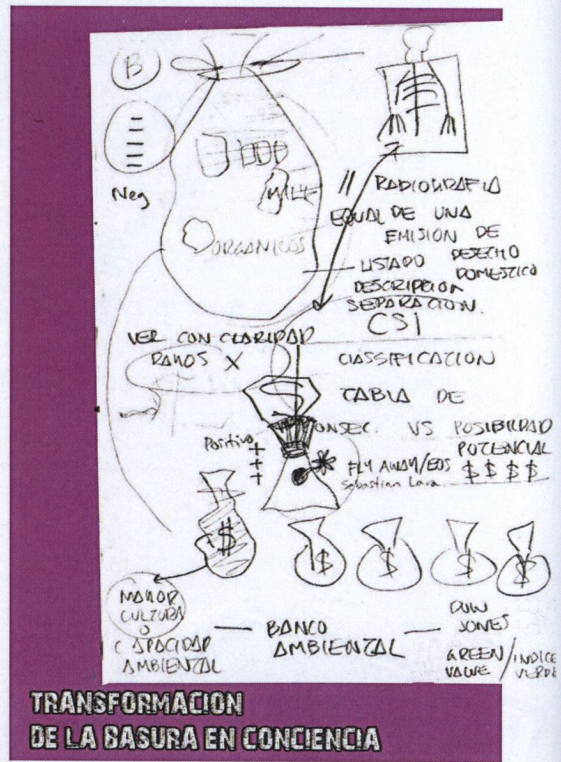 B
Neg
MILK
ORGANICOS
// RADIOGRAFIA
EQUAL DE UNA
EMISION DE
LISTADO DESECHO
DOMESTICO
DESCRIPCION
SEPARACION.
CSI
VER CON CLARIDAD
RAYOS X
CLASSIFICATION
TABLA DE
CONSEC. VS POSIBILIDAD
POTENCIAL
Positivo
+
+
+
FLY AWAY/EOS
$ $ $ $
Sebastian Lava
$
$
$
$
$
MAYOR
CULTURA
O
CAPACIDAD
AMBIENTAL
— BANCO —
AMBIENTAL
DOW
JONES
GREEN / INDICE
VALUE VERDE
TRANSFORMACION
DE LA BASURA EN CONCIENCIA